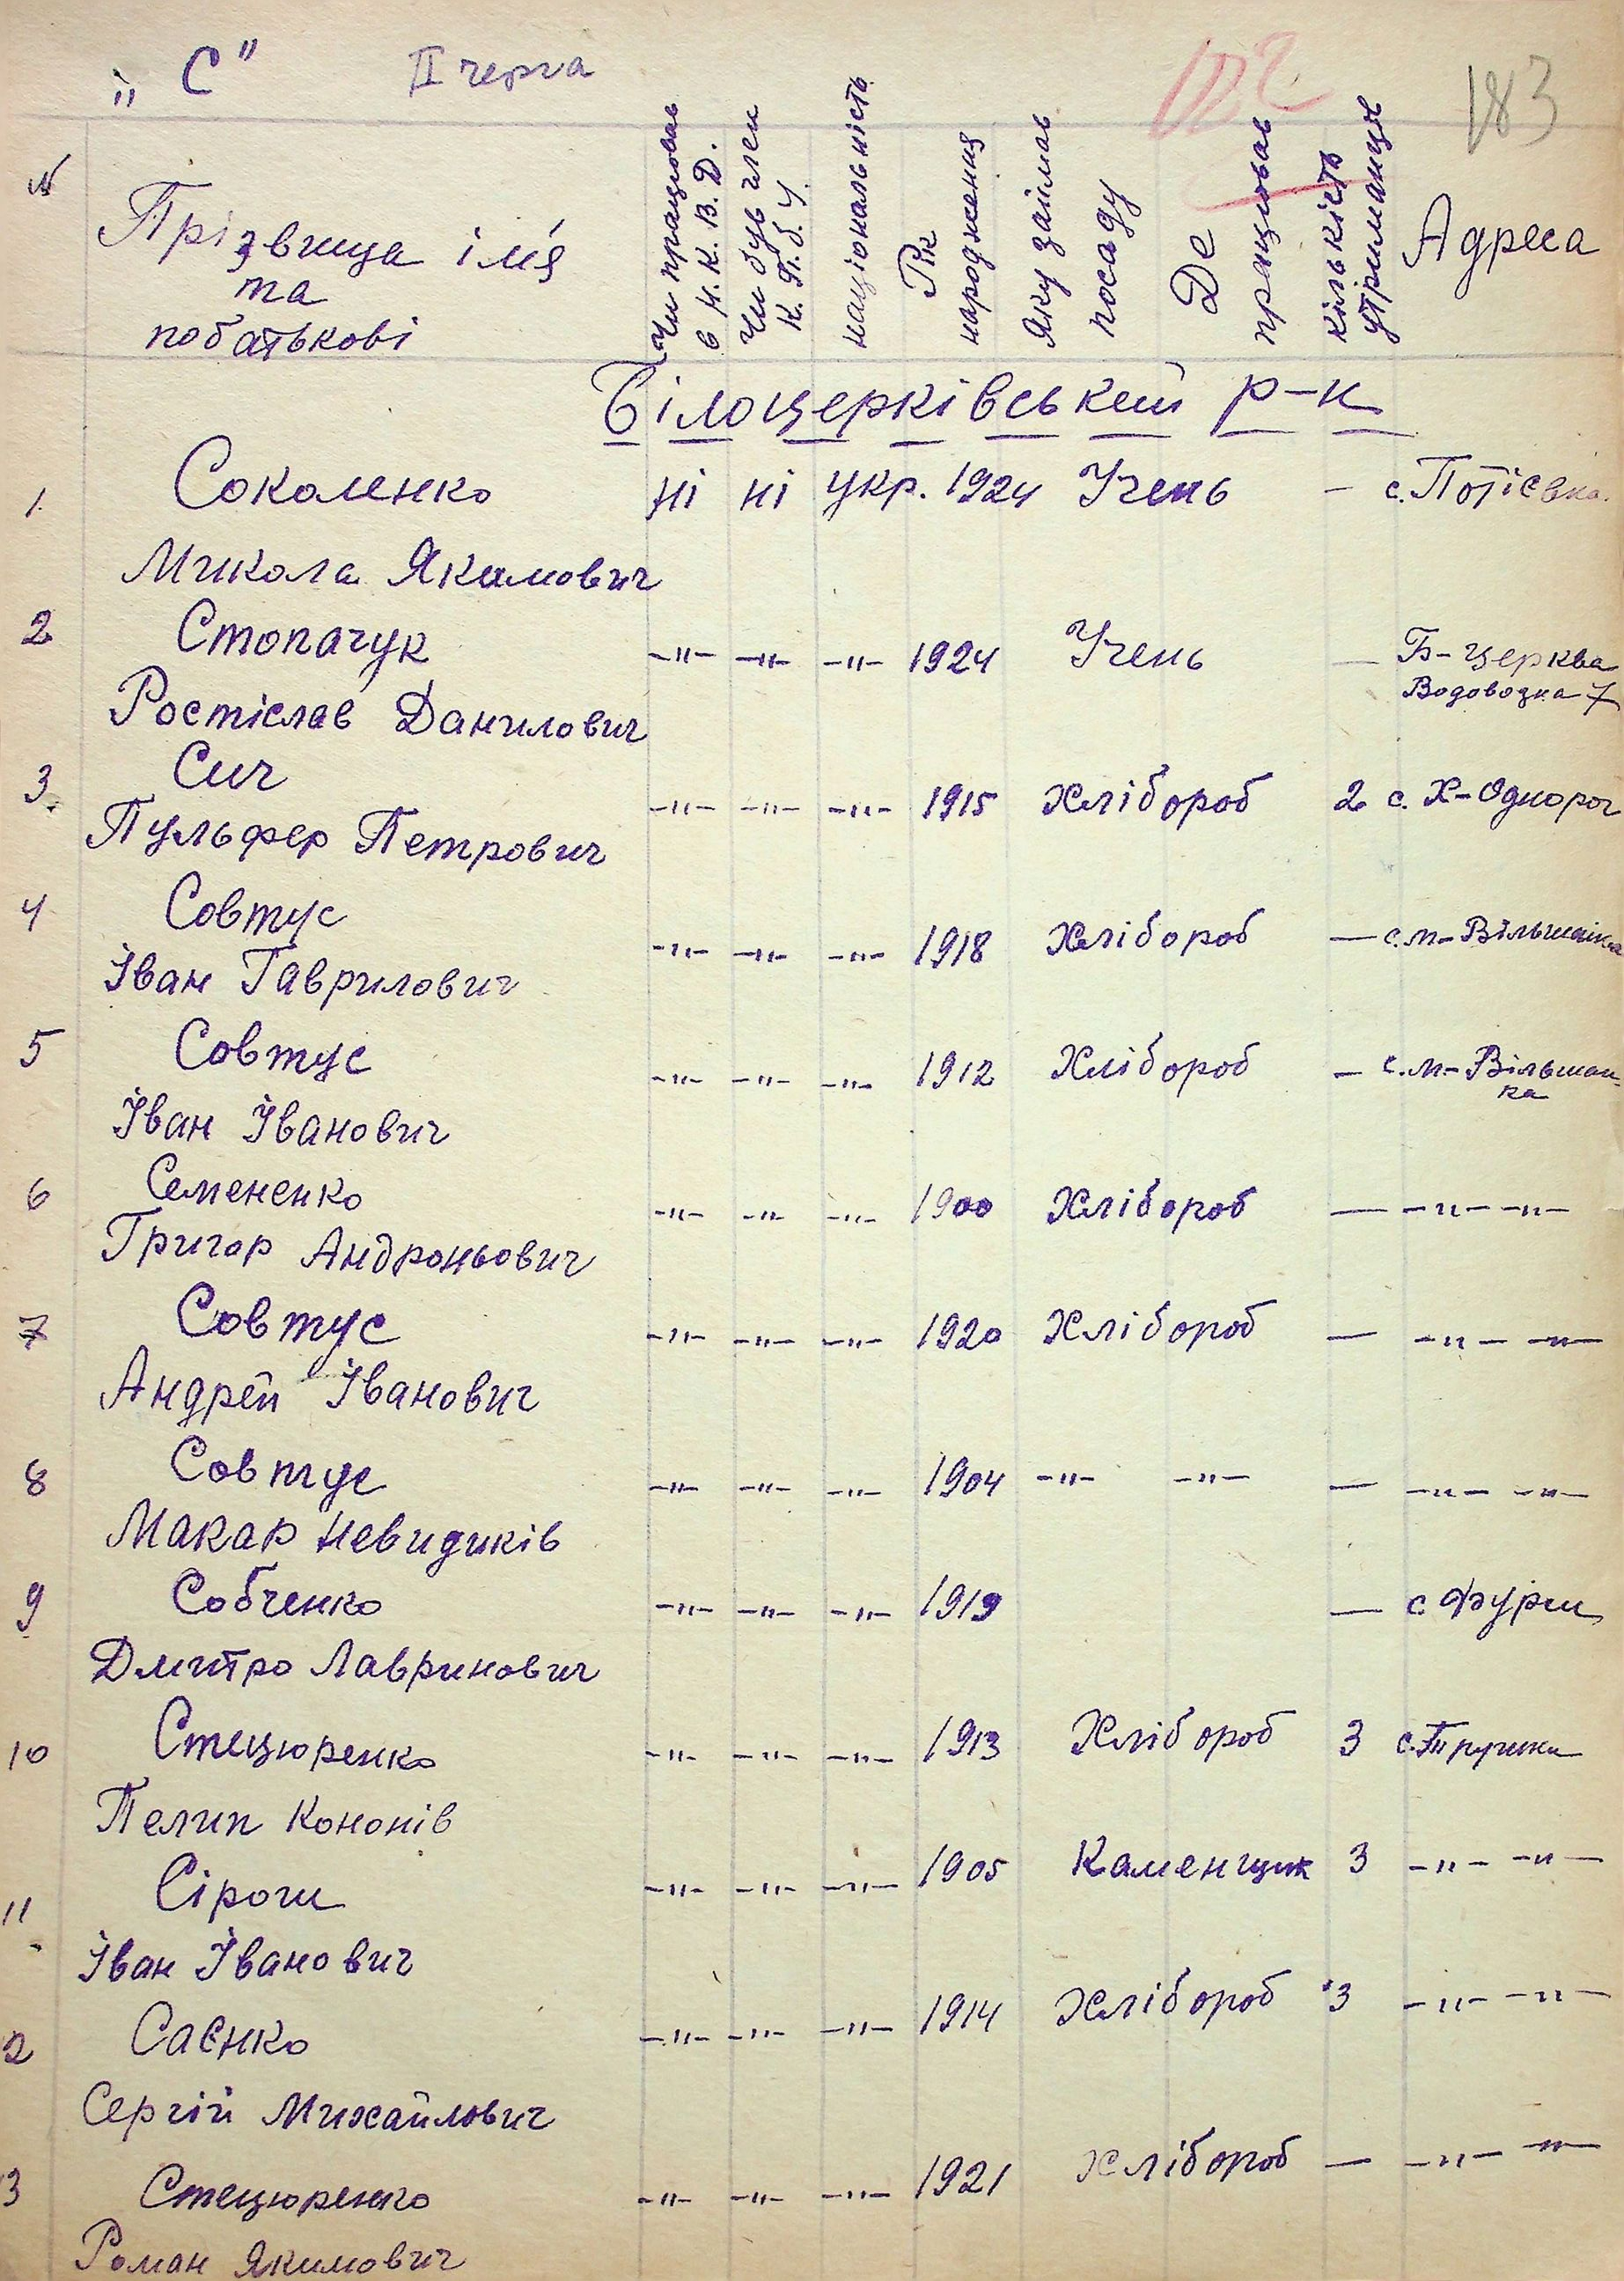 „С" II черга 182 183
№ Прізвища ім'я та побатькові Чи працював в Н.К.В.Д. Чи був член К.П.б.У. національність Рік народження Яку займав посаду Де працював кількість утриманців Адреса
Білоцерківський р-н
1. Соколенко ні ні укр. 1924 Учень – с. Потієвка.
Микола Якимович
2 Стопачук –"– –"– –"– 1924 Учень — Б-церква
Водовозна 7
Ростіслав Данилович
3. Сич –"– –"– –"– 1915 Хлібороб 2 с. Х-Однорог
Пульфер Петрович
4 Совтус –"– –"– –"– 1918 Хлібороб — с. м-Вільшанка
Іван Гаврилович
5 Совтус –"– –"– –"– 1912 Хлібороб – с. м-Вільшан-
ка
Іван Іванович
6 Семененко –"– –"– –"– 1900 Хлібороб — –"– –"–
Григор Андроньович
7 Совтус –"– –"– –"– 1920 Хлібороб — –"– –"–
Андрей Іванович
8 Совтус –"– –"– –"– 1904 –"– –"– — –"– –"–
Макар Невидиків
9 Собченко –"– –"– –"– 1919 — с Фурси
Дмитро Лавринович
10 Стецюренко –"– –"– –"– 1913 Хлібороб 3 с.Трушки
Пелип Кононів
11 Сірош –"– –"– –"– 1905 Каменщик 3 –"– –"–
Іван Іванович
2 Саєнко –"– –"– –"– 1914 Хлібороб 3 –"– –"–
Сергій Михайлович
3 Стецюренко –"– –"– –"– 1921 Хлібороб — –"– –"–
Роман Якимович